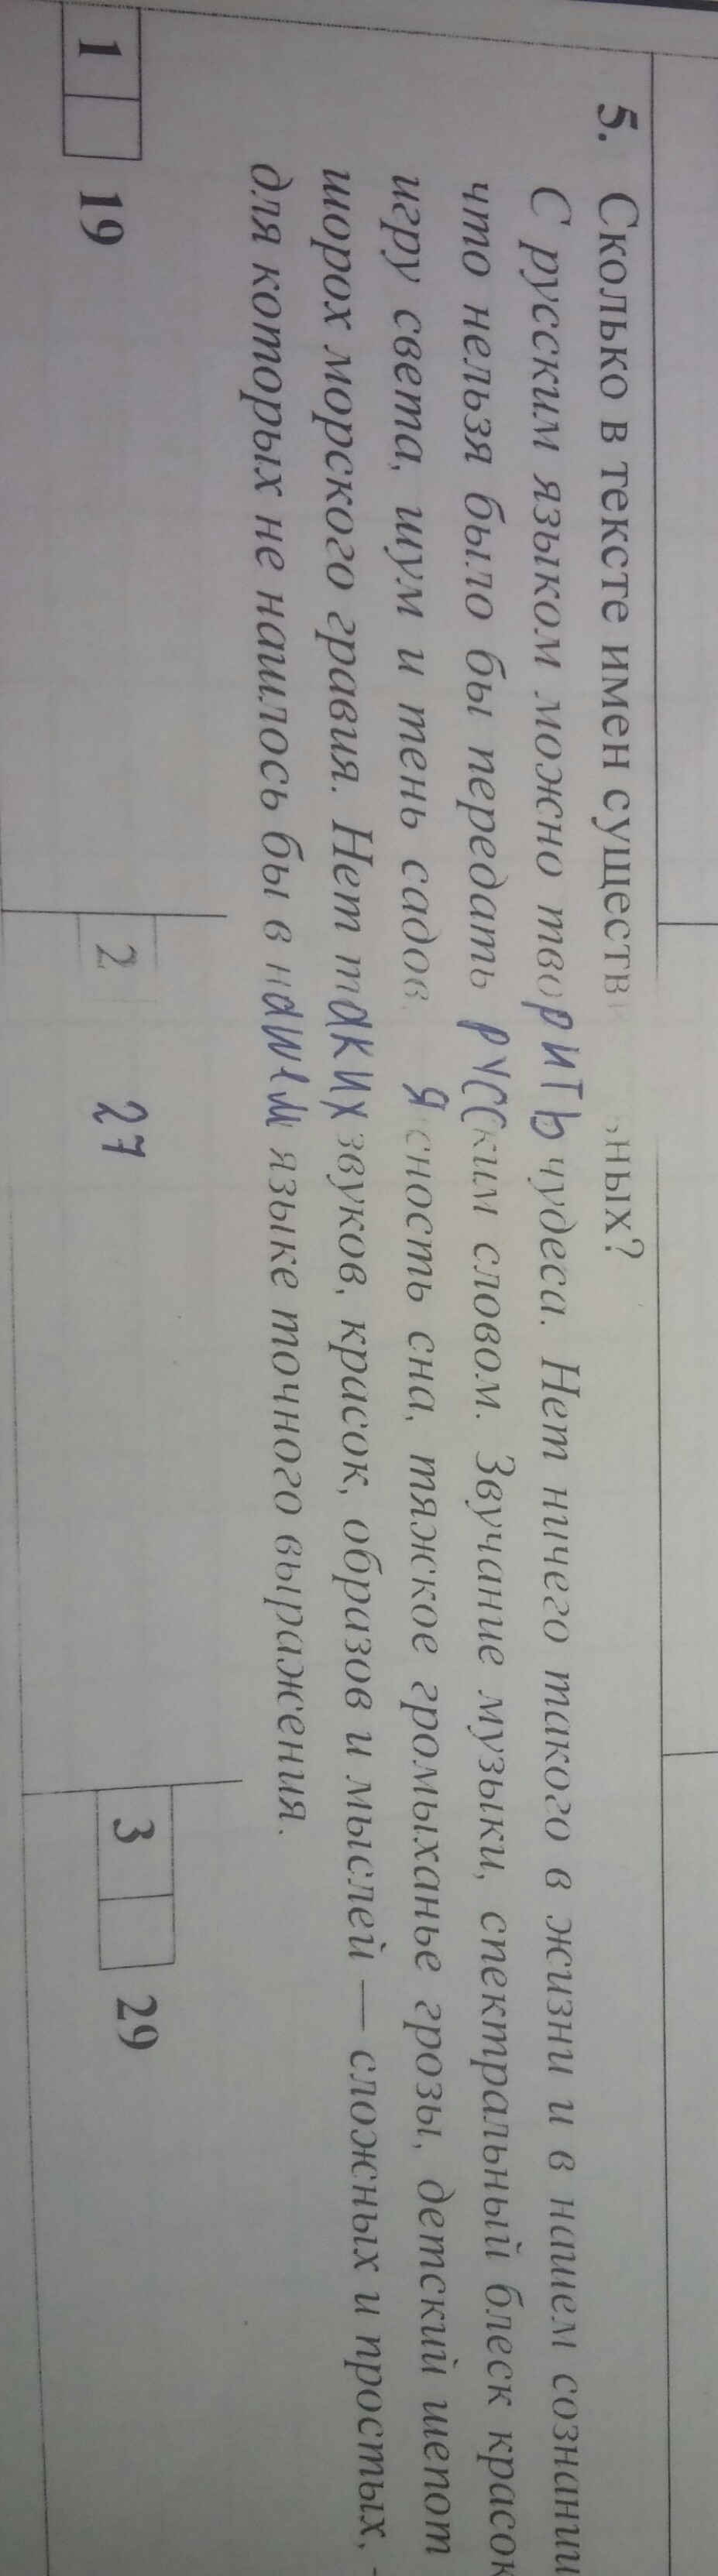 5. Сколько в тексте имен существ ных?
С русским языком можно творить чудеса. Нет ничего такого в жизни и в нашем сознании
что нельзя было бы передать русским словом. Звучание музыки, спектральный блеск красок
игру света, шум и тень садов, Ясность сна, тяжкое громыханье грозы, детский шепот
шорох морского гравия. Нет таких звуков, красок, образов и мыслей — сложных и простых, -
для которых не нашлось бы в нашем языке точного выражения.
1 19 2 27 3 29